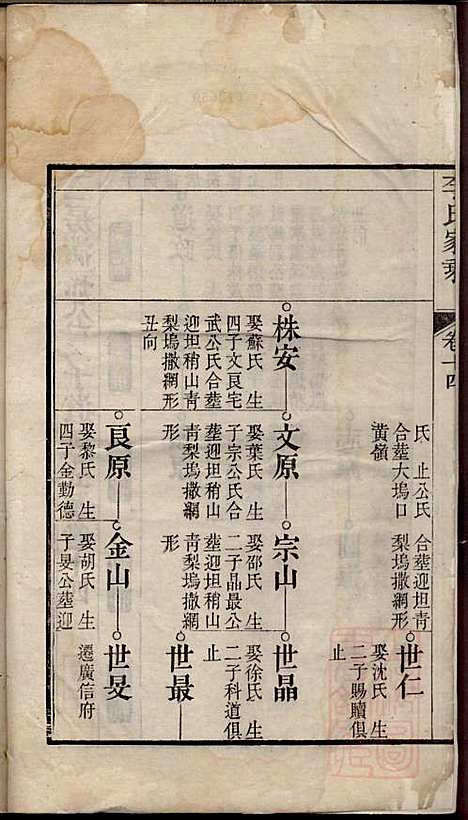 李氏家乘
卷十四
氏　止公氏
合塟大塢口
黄嶺
合塟迎坦青
梨塢撒網形
世仁
娶沈氏　生
二子賜贖俱
止
株安
娶蘇氏　生
四子文良宅
武公氏合塟
迎坦稍山青
梨塢撒網形
丑向
文原
娶葉氏　生
子宗公氏合
塟迎坦稍山
青梨塢撒網
形
宗山
娶邵氏　生
二子晶最公
塟迎坦稍山
青梨塢撒網
形
世晶
娶徐氏　生
二子科道俱
止
世最
良原
娶黎氏　生
四子金勤德
金山
娶胡氏　生
子旻公塟迎
世旻
遷廣信府